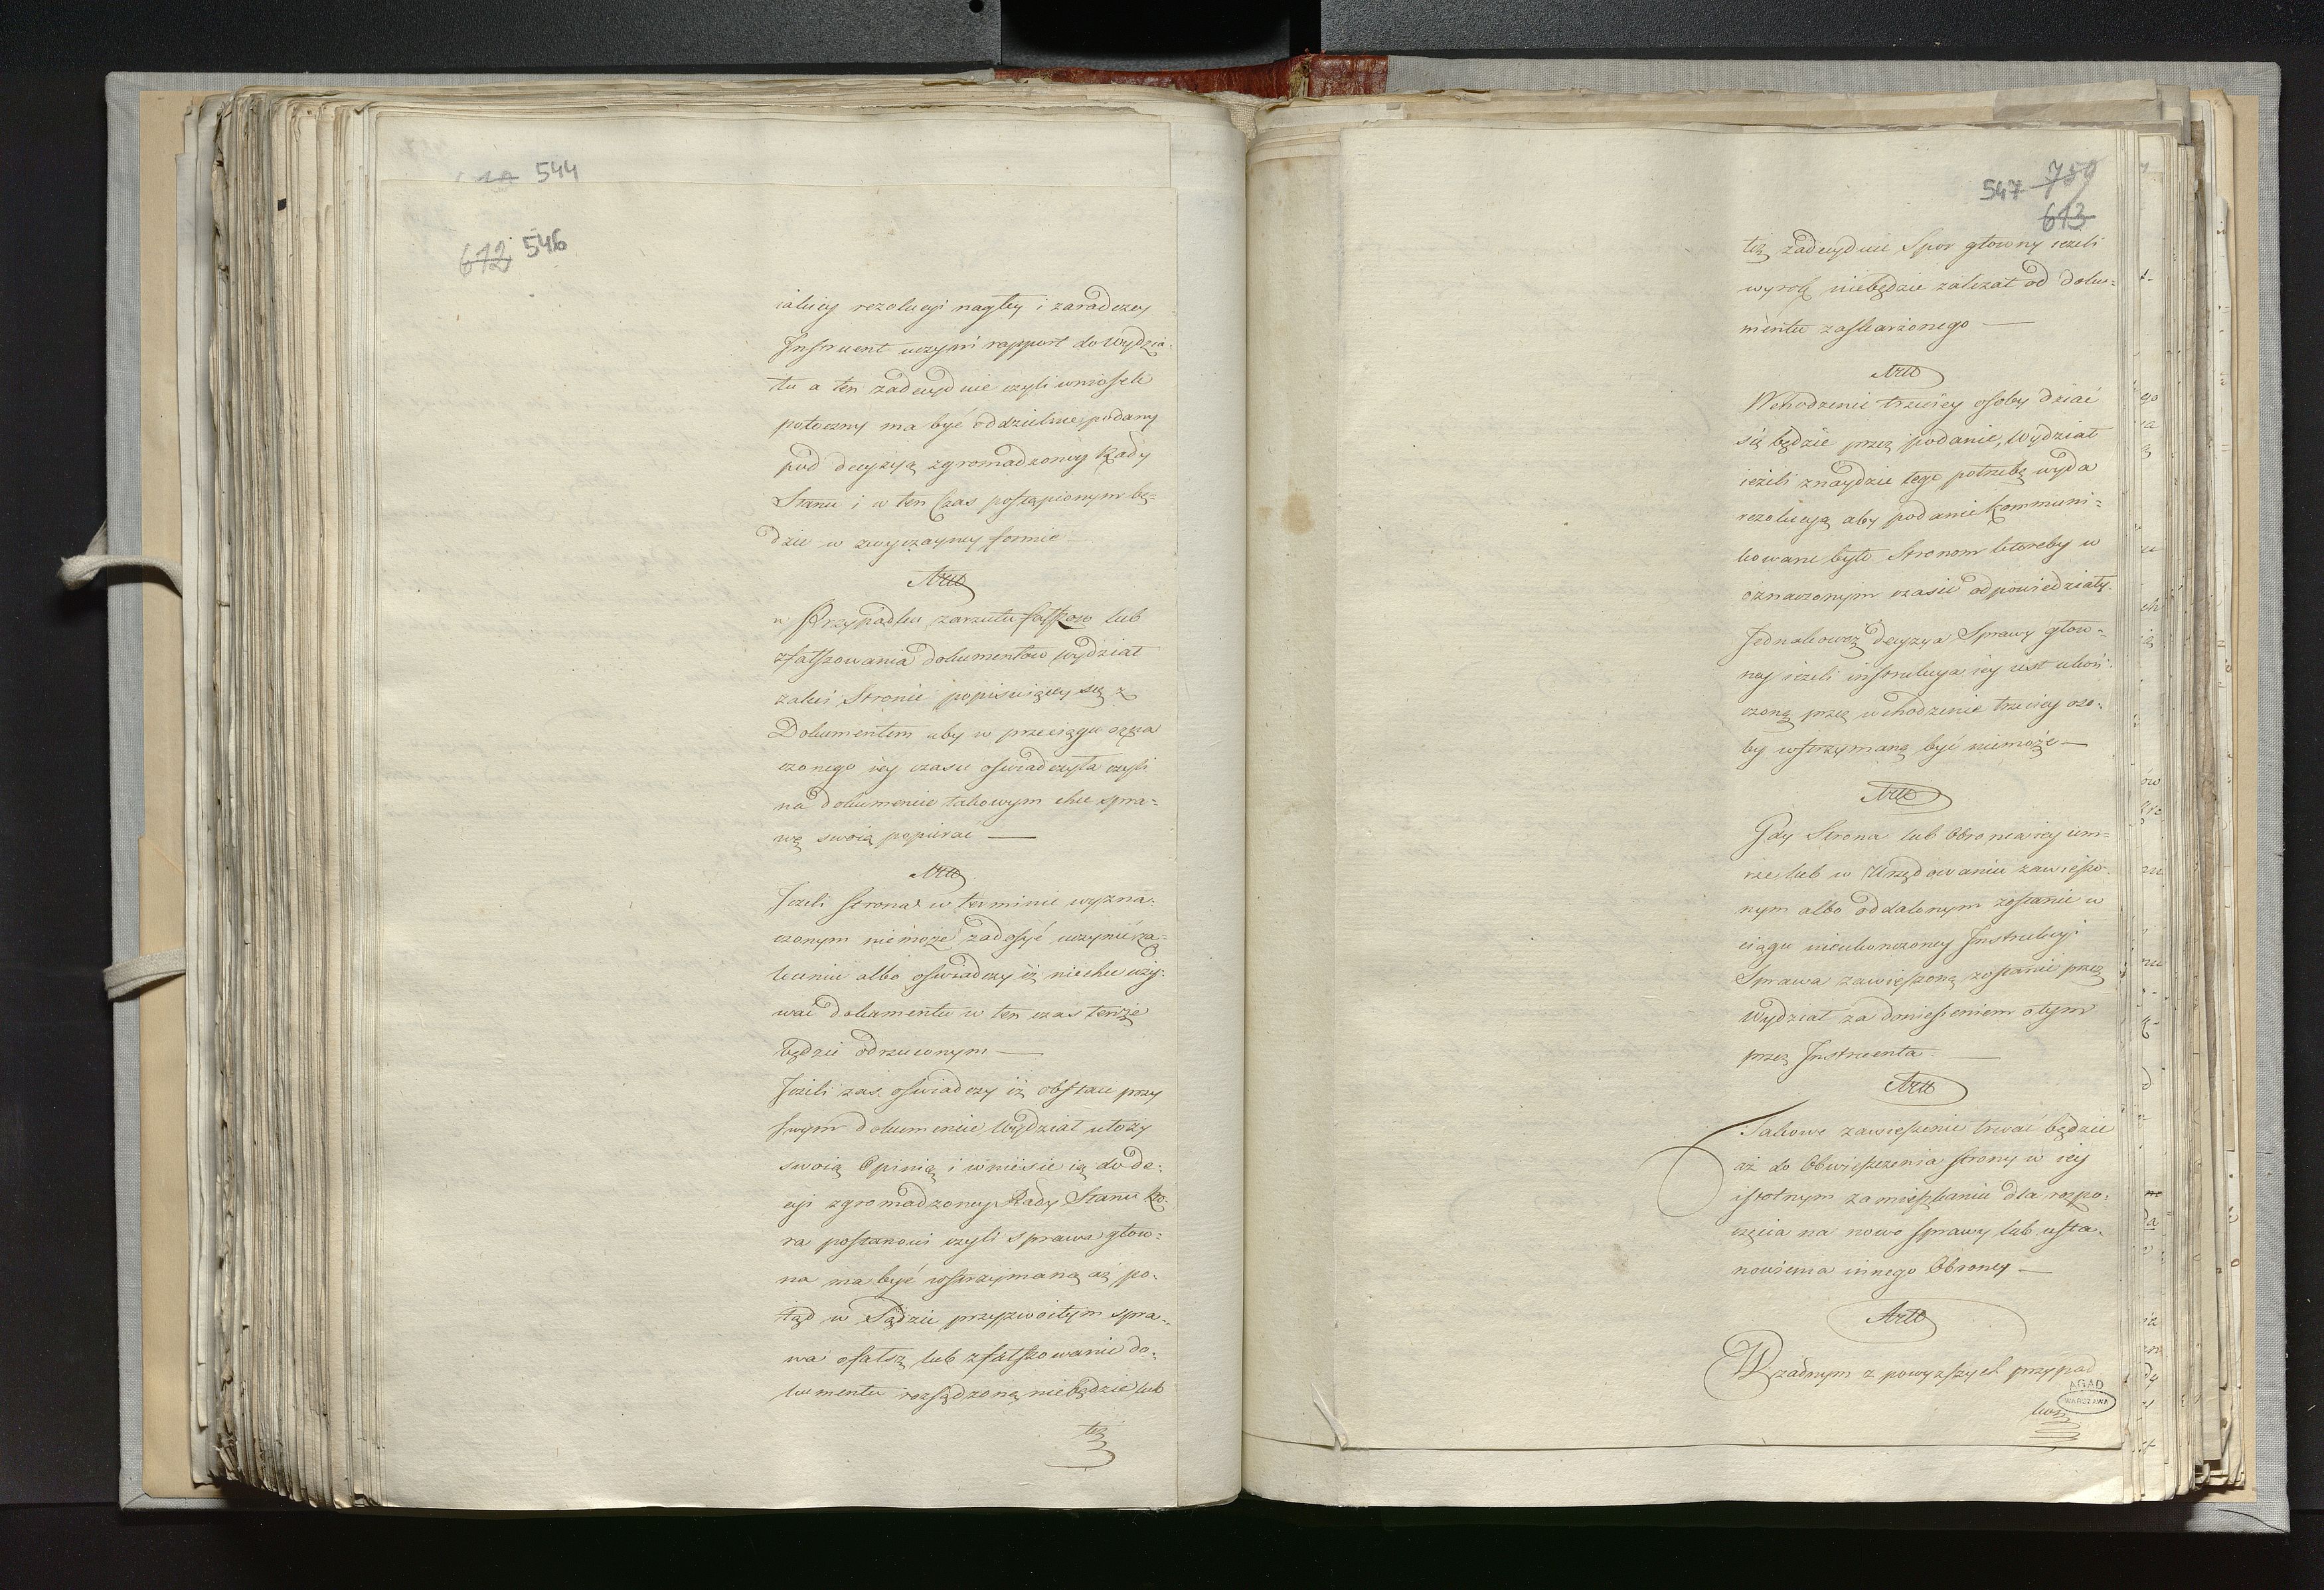 544
612 546
iakiey rezolucyi nagłey i zaradczey
Instruent uczyni rapport do Wydzia-
łu a ten zadecyduie czyli wniosek
potoczny ma być oddzielnie podany
pod decyzyą zgromadzoney Rady
Stanu i w ten Czas postąpionym bę-
dzie w zwyczayney formie
Artł
w Przypadku zarzutu fałszow lub
zfałszowania dokumentów Wydział
zaleci Stronie popisuiącey się z
Dokumentem aby w przeciągu ozna
czonego iey czasu oświadczyła czyli
na dokumencie takowym chce spra=
wę swoią popierać —
Artł
Jeżeli Strona w terminie wyzna-
czonym niemoże zadosyć uczynić za-
leceniu albo oświadczy iż niechce uży-
wać dokumentu w ten czas tenże
będzie odrzuconym —
Jeżeli zaś oświadczy iż obstaie przy
swym dokumencie Wydział ułoży
swoią Opinią i wniesie ią do de-
cyi zgromadzoney Rady Stanu kto-
ra postanowi czyli sprawa głow-
na ma być wstrzymaną aż po-
tąd w Sądzie przyzwoitym spra-
wa o fałsz lub zfałszowanie do-
kumentu rozsądzoną niebędzie lub
też
547 780
613
też zadecyduie Spor głowny ieżeli
wyrok niebędzie zależał od doku=
mentu zaskarżonego —
Artł
Wchodzenie trzeciey osoby dziać
się będzie przez podanie, Wydział
ieżeli znaydzie tego potrzebę wyda
rezolucyą aby podanie kommuni=
kowane było Stronom któreby w
oznaczonym czasie odpowiedziały.
Jednakowoż decyzya Sprawy głow-
ney ieżeli instrukcya iey iest ukoń-
czoną przez wchodzenie trzeciey oso-
by wstrzymaną być niemoże —
Artł
Gdy Strona lub Obronca iey um=
rze, lub w Urzędowaniu zawieszo-
nym albo oddalonym zostanie w
ciągu nieukończoney Instrukcyi
Sprawa zawieszoną zostanie przez
Wydział za doniesieniem o tym
przez Instruenta. —
Artł
Takowe zawieszenie trwać będzie
aż do Obwieszczenia strony w iey
istotnym zamieszkaniu dla rozpo-
częcia na nowo sprawy lub usta-
nowienia innego Obroncy —
Artł
W żadnym z powyższych przypad
kow
AGAD
WARSZAWA